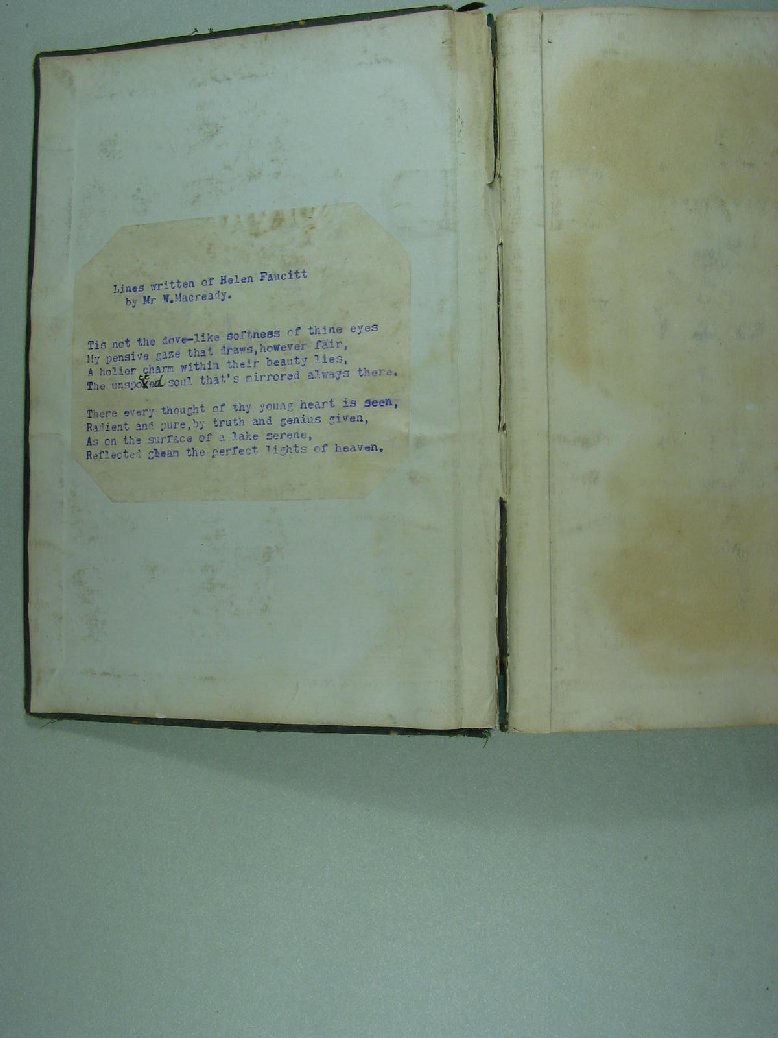 Lines written of Helen Faucitt
by Mr W.Macready.
Tis not the dove-like softness of thine eyes
My pensive gaze that draws,however fair,
A holier charm within their beauty lies,
The unspoked soul that's mirrored always there.
There every thought of thy young heart is seen,
Radient and pure,by truth and genius given,
As on the surface of a lake serene,
Reflected gleam the perfect lights of heaven.